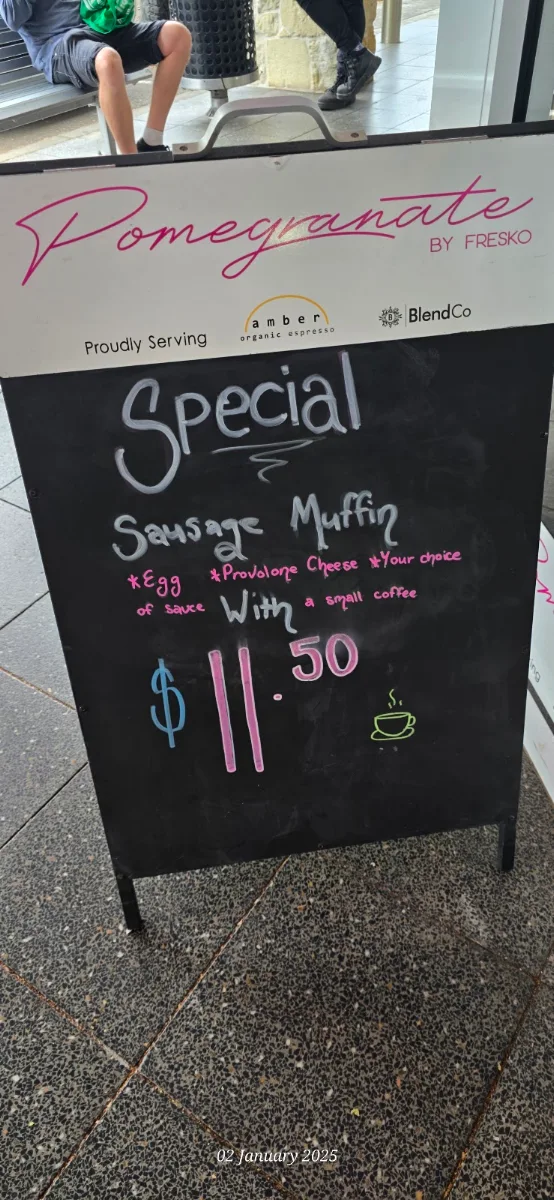 Pomegranate
BY FRESKO
Proudly Serving
amber
organic espresso
B
BlendCo
Special
Sausage Muffin
*Egg *Provolone Cheese *Your choice
of sauce With a small coffee
$11.50
02 January 2025